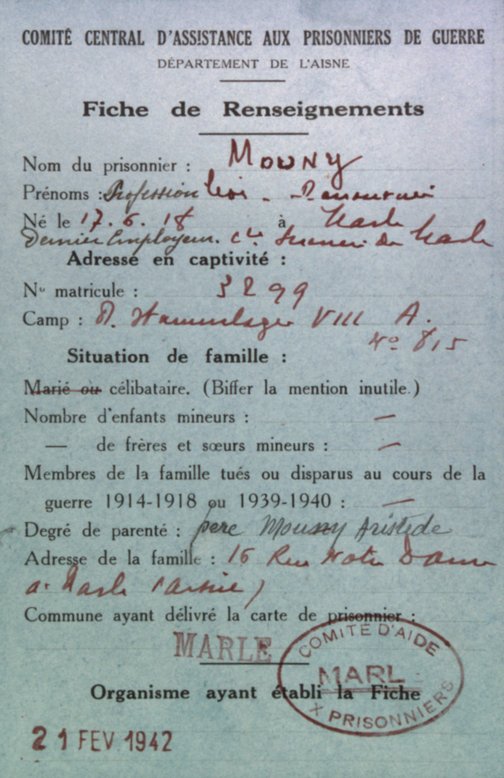 COMITÉ CENTRAL D'ASSISTANCE AUX PRISONNIERS DE GUERRE
DÉPARTEMENT DE L'AISNE
Fiche de Renseignements
Nom du prisonnier : MOUNY
Prénoms : Profession
Né le 17.6.18 à Marle
Dernier Employeur. Cie Sucrerie de Marle
Adresse en captivité :
No matricule : 3299
Camp : Stammlager VIII A.
No 815
Situation de famille :
Marié ou célibataire. (Biffer la mention inutile.)
Nombre d'enfants mineurs : —
— de frères et sœurs mineurs : —
Membres de la famille tués ou disparus au cours de la
guerre 1914-1918 ou 1939-1940 : —
Degré de parenté : père Mouny Aristide
Adresse de la famille : 16 Rue Notre Dame
à Marle (Aisne)
Commune ayant délivré la carte de prisonnier :
MARLE
COMITÉ D'AIDE
MARL
X PRISONNIERS
Organisme ayant établi la Fiche
21 FEV 1942